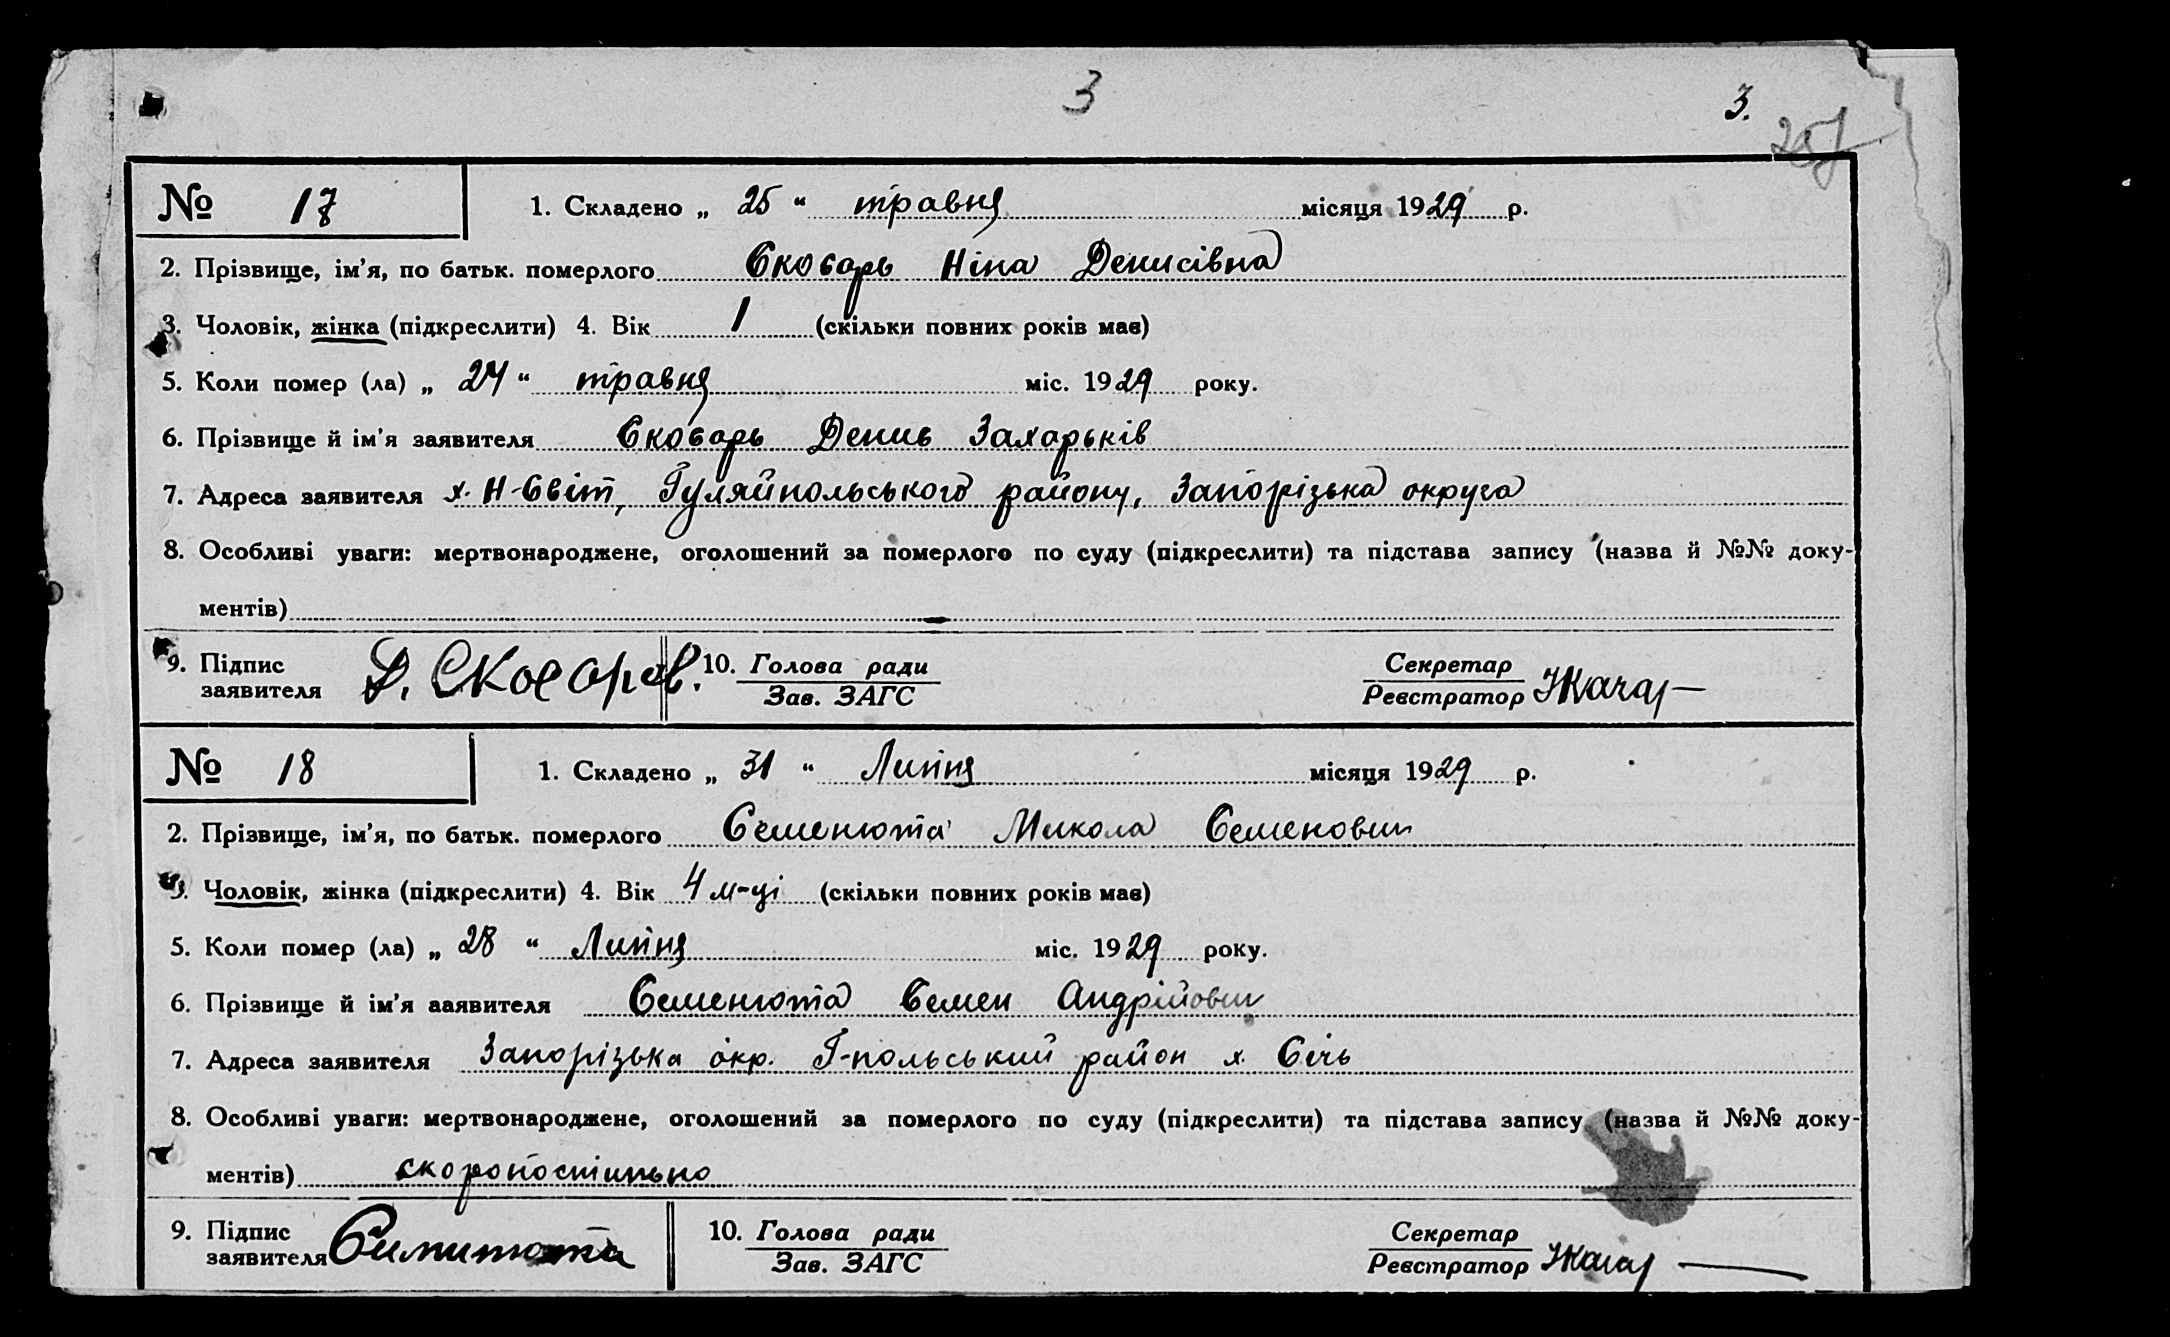 3
3.
№ 17 1. Складено „ 25 “ травня місяця 1929 р.
2. Прізвище, ім’я, по батьк. померлого Скобарь Ніна Денисівна
3. Чоловік, жінка (підкреслити) 4. Вік 1 (скільки повних років має)
5. Коли помер (ла) „ 24 “ травня міс. 1929 року.
6. Прізвище й ім’я заявителя Скобарь Денис Захарьків
7. Адреса заявителя х. Н-Світ, Гуляйпольського району, Запорізька округа
8. Особливі уваги: мертвонароджене, оголошений за померлого по суду (підкреслити) та підстава запису (назва й №№ доку-
ментів)
9. Підпис заявителя Д. Скобарев. 10. Голова ради Секретар
Зав. ЗАГС Реєстратор
№ 18 1. Складено „ 31 “ Липня місяця 1929 р.
2. Прізвище, ім’я, по батьк. померлого Семенюта Микола Семенович
3. Чоловік, жінка (підкреслити) 4. Вік 4 м-ці (скільки повних років має)
5. Коли помер (ла) „ 28 “ Липня міс. 1929 року.
6. Прізвище й ім’я заявителя Семенюта Семен Андрійович
7. Адреса заявителя Запорізька окр. Г-польський район х. Січь
8. Особливі уваги: мертвонароджене, оголошений за померлого по суду (підкреслити) та підстава запису (назва й №№ доку-
ментів) скоропостижно
9. Підпис заявителя 10. Голова ради Секретар
Зав. ЗАГС Реєстратор